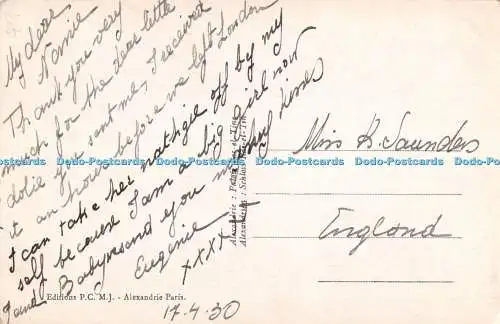 My dear
Nannie
Thank you very
much for the dear little
dolie you sent me, I received
it an hour before we left London
I can take her nathgie off by my
self because I am a big girl now
I and Baby send you many kisses
Eugenie
XXXX
17-4-30
Editions P.C.M.J. - Alexandrie Paris.
Alexandrie :
Alexandrien : Schla
Miss K. Saunders
England
Dodo-Postcards Dodo-Postcards Dodo-Postcards Dodo-Postcards Dodo-Postcards Dodo-Postcards